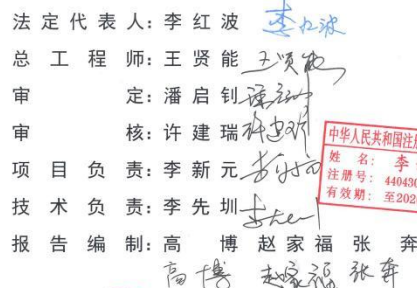 法定代表人:李红波 李红波
总工程师:王贤能 王贤能
审定:潘启钊
审核:许建瑞 许建瑞
项目负责:李新元
技术负责:李先圳
报告编制:高博 赵家福 张奔
高博 赵家福 张奔
中华人民共和国注册
姓名:李
注册号:440430
有效期:至202